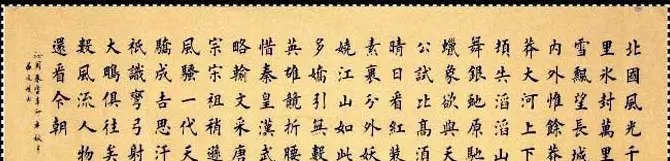 北國風光千
里氷封萬里
雪飄望長城
内外惟餘莽
莽大河上下
頓失滔滔山
舞銀蛇原馳
蠟象欲與天
公試比高須
晴日看紅裝
素裹分外妖
嬈江山如此
多嬌引無數
英雄競折腰
惜秦皇漢武
略輸文采唐
宗宋祖稍遜
風騷一代天
驕成吉思汗
祇識彎弓射
大鵬俱往矣
數風流人物
還看今朝
沁園春雪